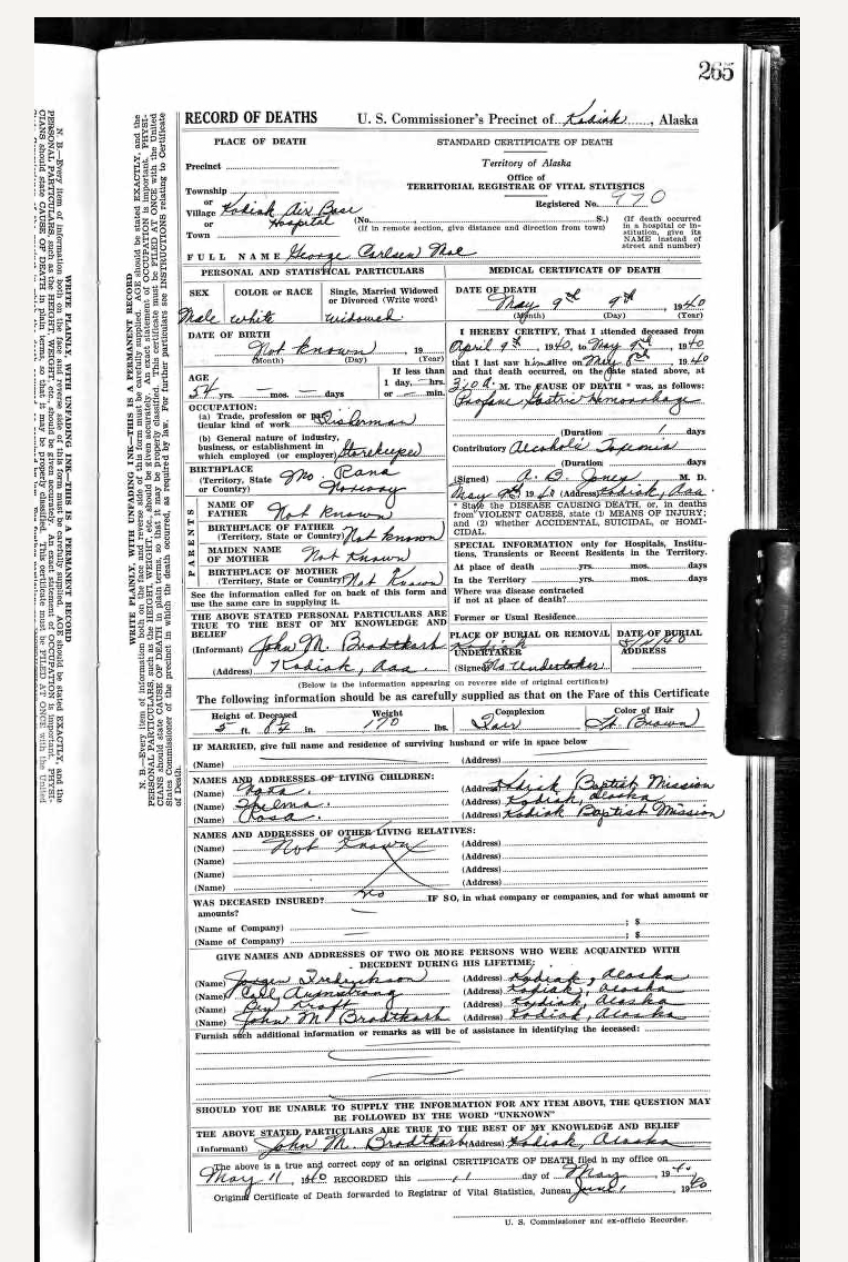 265
RECORD OF DEATHS U. S. Commissioner's Precinct of Kodiak, Alaska
PLACE OF DEATH STANDARD CERTIFICATE OF DEATH
Territory of Alaska
Precinct
Office of
TERRITORIAL REGISTRAR OF VITAL STATISTICS
Township
or
Registered No. 970
Village Kodiak Air Base
or Hospital (No. S.)
Town (If in remote section, give distance and direction from town)
(If death occurred in a hospital or institution, give its NAME instead of street and number)
FULL NAME George Carlsen Moe
PERSONAL AND STATISTICAL PARTICULARS
SEX COLOR or RACE Single, Married Widowed or Divorced (Write word)
Male white widowed
DATE OF BIRTH
Not known, 19
(Month) (Day) (Year)
AGE If less than
1 day, — hrs.
54 yrs. — mos. — days or — min.
OCCUPATION:
(a) Trade, profession or particular kind of work Fisherman
(b) General nature of industry,
business, or establishment in
which employed (or employer) Storekeeper
BIRTHPLACE
(Territory, State Mo. Rana
or Country) Norway
PARENTS
NAME OF
FATHER Not known
BIRTHPLACE OF FATHER
(Territory, State or Country) Not known
MAIDEN NAME
OF MOTHER Not Known
BIRTHPLACE OF MOTHER
(Territory, State or Country) Not Known
See the information called for on back of this form and
use the same care in supplying it.
THE ABOVE STATED PERSONAL PARTICULARS ARE
TRUE TO THE BEST OF MY KNOWLEDGE AND
BELIEF
(Informant) John M. Brodtkorb
(Address) Kodiak, Aaa.
MEDICAL CERTIFICATE OF DEATH
DATE OF DEATH
May 9th 9th, 1940
(Month) (Day) (Year)
I HEREBY CERTIFY, That I attended deceased from
April 9th, 1940, to May 9th, 1940
that I last saw him alive on May 8th, 1940
and that death occurred, on the date stated above, at
M. The CAUSE OF DEATH * was, as follows:
Gastric Hemorrhage
(Duration 1 days
Contributory Alcoholic
(Duration) days
(Signed) A. B. Jones M. D.
May 9th 1940 (Address) Kodiak, Aaa.
* State the DISEASE CAUSING DEATH, or, in deaths
from VIOLENT CAUSES, state (1) MEANS OF INJURY;
and (2) whether ACCIDENTAL, SUICIDAL, or HOMICIDAL.
SPECIAL INFORMATION only for Hospitals, Institutions, Transients or Recent Residents in the Territory.
At place of death yrs. mos. days
In the Territory yrs. mos. days
Where was disease contracted
if not at place of death?
Former or Usual Residence
PLACE OF BURIAL OR REMOVAL DATE OF BURIAL
Kodiak
UNDERTAKER ADDRESS
(Signed) No Undertaker
(Below is the information appearing on reverse side of original certificate)
The following information should be as carefully supplied as that on the Face of this Certificate
Height of Deceased Weight Complexion Color of Hair
5 ft. 8½ in. 170 lbs. Fair Lt. Brown
IF MARRIED, give full name and residence of surviving husband or wife in space below
(Name) (Address)
NAMES AND ADDRESSES OF LIVING CHILDREN:
(Name) (Address) Kodiak Baptist Mission
(Name) Thelma. (Address) Kodiak, Alaska
(Name) Rosa. (Address) Kodiak Baptist Mission
NAMES AND ADDRESSES OF OTHER LIVING RELATIVES:
(Name) Not Known (Address)
(Name) (Address)
(Name) (Address)
(Name) (Address)
WAS DECEASED INSURED? No IF SO, in what company or companies, and for what amount or
amounts?
(Name of Company) ; $
(Name of Company) ; $
GIVE NAMES AND ADDRESSES OF TWO OR MORE PERSONS WHO WERE ACQUAINTED WITH
DECEDENT DURING HIS LIFETIME:
(Name) Jorgen Frederikson (Address) Kodiak, Alaska
(Name) Armstrong (Address) Kodiak, Alaska
(Name) Ben Kraft (Address) Kodiak, Alaska
(Name) John M Brodtkorb (Address) Kodiak, Alaska
Furnish such additional information or remarks as will be of assistance in identifying the deceased:
SHOULD YOU BE UNABLE TO SUPPLY THE INFORMATION FOR ANY ITEM ABOVE, THE QUESTION MAY
BE FOLLOWED BY THE WORD "UNKNOWN"
THE ABOVE STATED PARTICULARS ARE TRUE TO THE BEST OF MY KNOWLEDGE AND BELIEF
(Informant) John M. Brodtkorb (Address) Kodiak, Alaska
The above is a true and correct copy of an original CERTIFICATE OF DEATH filed in my office on
May 11, 1940 RECORDED this 11 day of May, 1940
Original Certificate of Death forwarded to Registrar of Vital Statistics, Juneau June 1, 1940
U. S. Commissioner and ex-officio Recorder.
WRITE PLAINLY, WITH UNFADING INK—THIS IS A PERMANENT RECORD
N. B.—Every item of information both on the face and reverse side of this form must be carefully supplied. AGE should be stated EXACTLY, and the
PERSONAL PARTICULARS, such as the HEIGHT, WEIGHT, etc., should be given accurately. An exact statement of OCCUPATION is important. PHYSICIANS should state CAUSE OF DEATH in plain terms, so that it may be properly classified. This certificate must be FILED AT ONCE with the United
States Commissioner of the precinct in which the death occurred, as required by law. For further particulars see INSTRUCTIONS relating to Certificate
of Death.
WRITE PLAINLY, WITH UNFADING INK—THIS IS A PERMANENT RECORD
N. B.—Every item of information both on the face and reverse side of this form must be carefully supplied. AGE should be stated EXACTLY, and the
PERSONAL PARTICULARS, such as the HEIGHT, WEIGHT, etc., should be given accurately. An exact statement of OCCUPATION is important. PHYSICIANS should state CAUSE OF DEATH in plain terms, so that it may be properly classified. This certificate must be FILED AT ONCE with the United